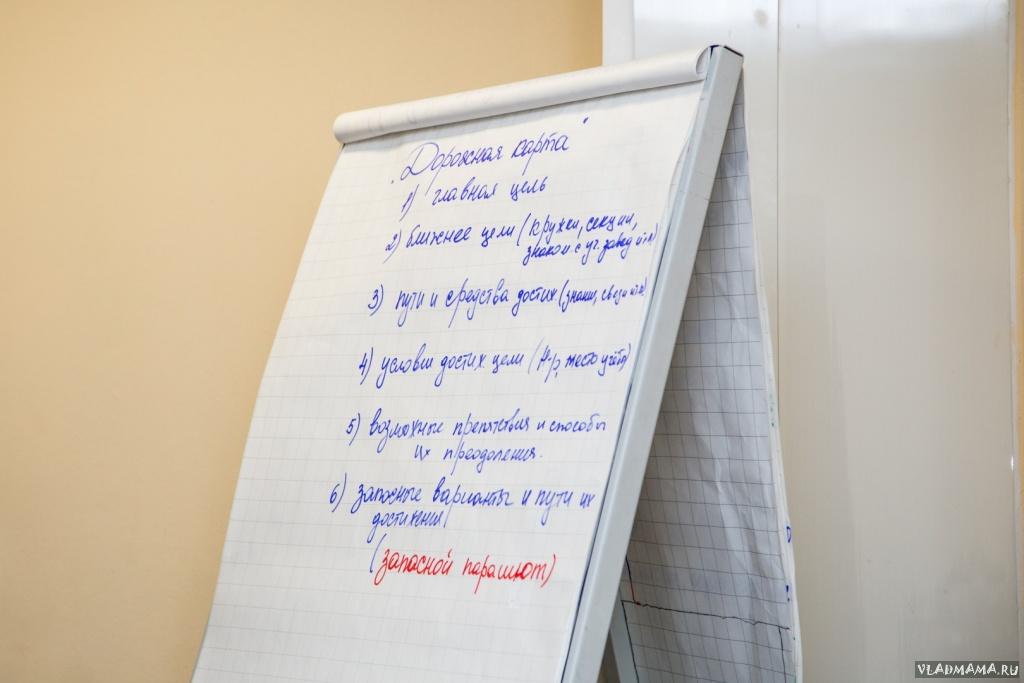 "Дорожная карта"
1) главная цель
2) ближнее цели (кружки, секции,
знаком с уч. завед и т.п)
3) пути и средства достих. (знаки, связи и т.п)
4) условия достих. цели (н-р, место учёбы)
5) возможные препятствия и способы
их преодоления.
6) запасные варианты и пути их
достижения
(запасной парашют)
VLADMAMA.RU